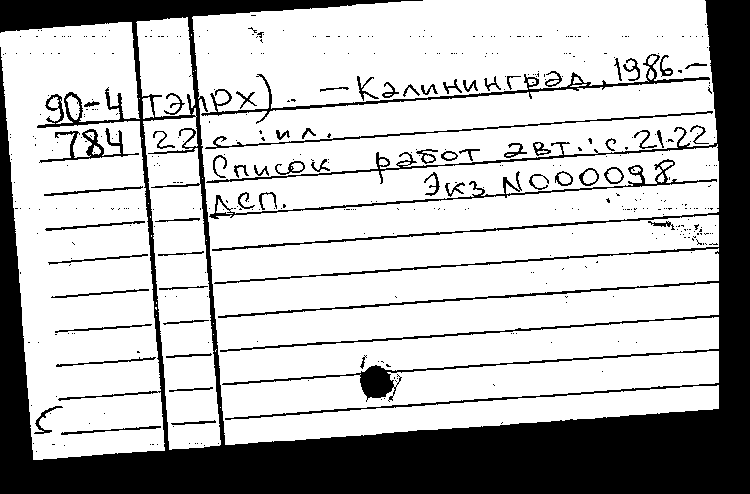 90-4 ТЭИРХ). — Калининград, 1986.—
784 22 с. : ил.
Список работ авт.: с. 21-22
ДСП. Экз N000098.
С